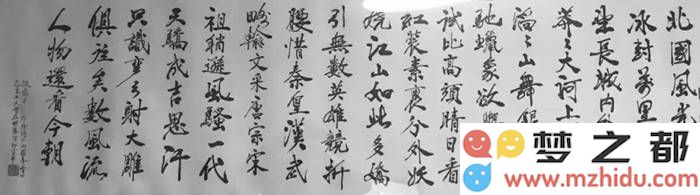 北國風光
冰封萬里
望長城内外
莽々大河上
滔々山舞銀
馳蠟象欲
試比高須晴日看
紅裝素裹分外妖
嬈江山如此多嬌
引無數英雄競折
腰惜秦皇漢武
略輸文采唐宗宋
祖稍遜風騷一代
天驕成吉思汗
只識彎弓射大雕
俱往矣數風流
人物還看今朝
梦之都
www.mzhidu.com